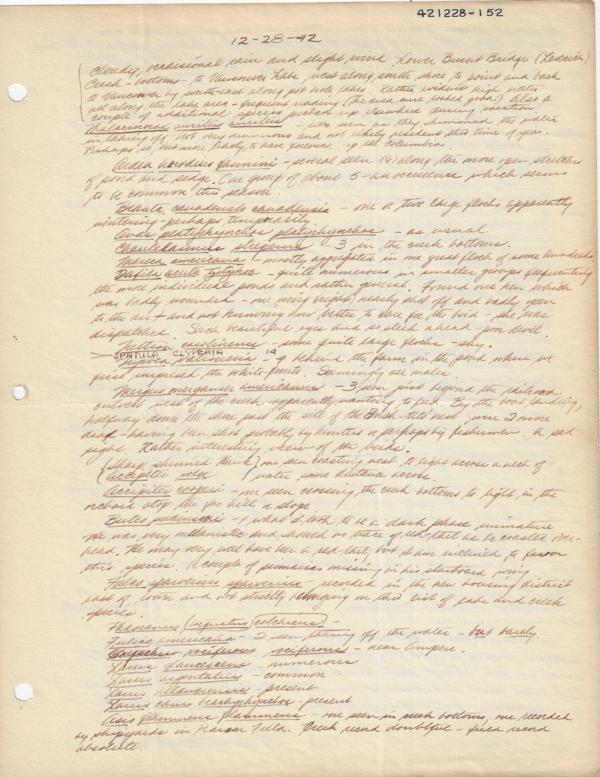 421228-152
12-28-42
Cloudy, occasional rain and slight wind. Lower Burnt Bridge (Leverich)
Creek - bottoms - to Vancouver Lake, west along south shore to point and back
to Vancouver by south-east along pot hole lakes. Rather high water
all along the lake area - frequent wading (the area sure looked good!) Also a
couple of additional species picked up elsewhere during vacation.
Phalacrocorax auritus - seen as they skimmed the water
in taking off. Not very numerous and not likely resident this time of year.
Perhaps so but more likely to have presence up the Columbia.
Ardea herodius fannini - several seen (4) along the more open stretches
of pond and sedge. One group of about 5 - an occurrence which seems
to be common this season.
Branta canadensis canadensis - one or two large flocks apparently
wintering perhaps temporarily
Anas platyrhynchos platyrhynchos - as usual
Chaulelasmus streperus - 3 in the creek bottoms.
Mareca americana - mostly aggregated in one great flock of some hundreds
Dafila acuta tzitzihoa - quite numerous in smaller groups frequenting
the more individual ponds and rather general. Found one hen which
was badly wounded - one wing nearly shot off and badly open
to the air and not knowing how better to care for the bird - she was
dispatched. Such beautiful eyes and so sleek a head - poor devil.
Nettion carolinense - some quite large flocks - shy.
SPATULA CLYPEATA 19
- 9 behind the farm in the pond where we
first surprised the white-fronts. Seemingly all males.
Mergus merganser americanus - 3 seen just beyond the railroad
culvert west of the creek apparently wanting to feed. By the boat landing,
halfway down the shore past the were 2 more
dead - having been shot probably by hunters or perhaps by fishermen. A sad
sight. Rather interesting view of the birds.
(Sharp shinned Hawk) one seen coasting west to light across a neck of
Accipiter velox water some distance across.
Accipiter cooperi - one seen crossing the creek bottoms to light in the
orchard atop the fox hill a slope
Buteo - 1 what I took to be a dark phase immature
He was very melanistic and showed no trace of red-tail as he coasted over-
head. He may very well have been a red-tail, but I am inclined to favor
this species. A couple of primaries missing in his starboard wing
Falco sparverius sparverius - recorded in the new housing district
east of town and not strictly belonging on this list of lake and creek
species.
Phasianus torquatus (colchicus) -
Fulica americana - 2 seen flaring off the water - but barely.
Oxyechus vociferus vociferus - near
Larus glaucescens - numerous
Larus argentatus - common
Larus - present
Larus canus brachyrhynchus - present
Asio flammeus flammeus - one seen in creek bottoms, one recorded
by shipyards in Farm Fields. Creek record doubtful - field record
absolute.